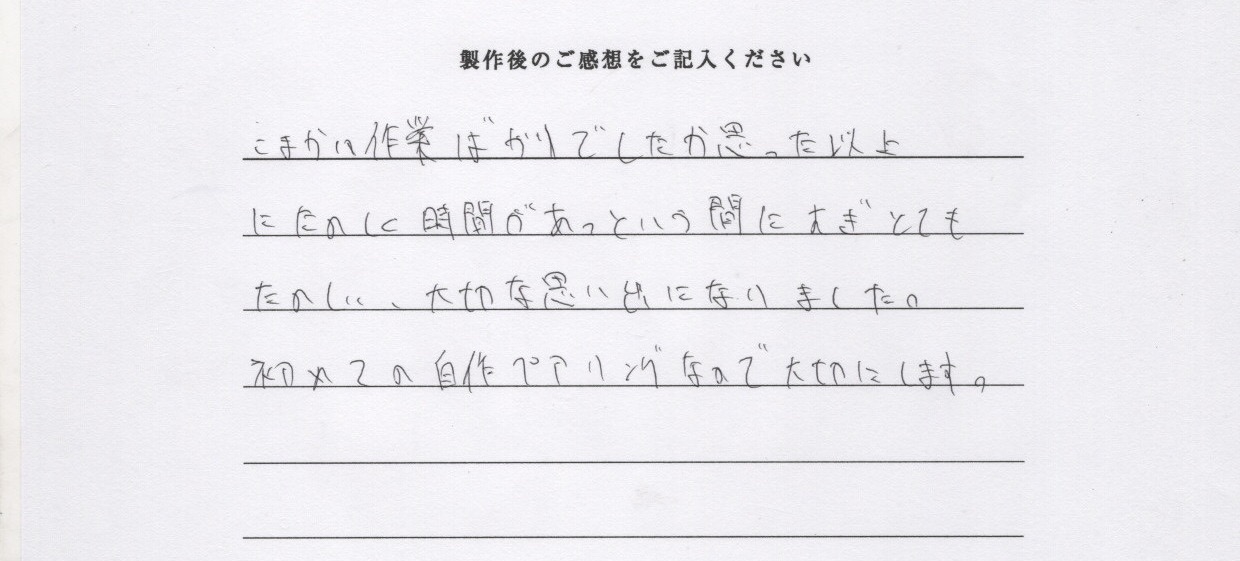 製作後のご感想をご記入ください
こまかい作業ばかりでしたが思った以上
にたのしく時間があっという間にすぎとても
たのしい、大切な思い出になりました。
初めての自作ペアリングなので大切にします。